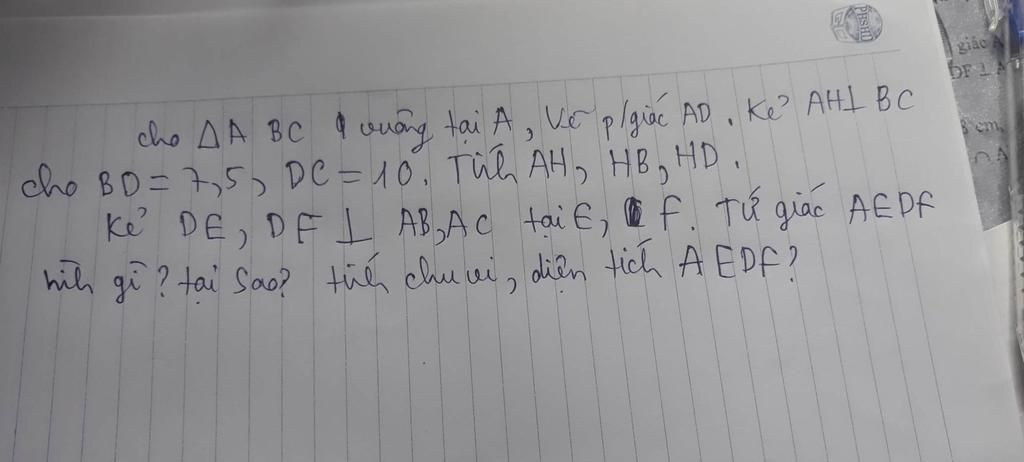 cho ΔABC vuông tại A, Vẽ p/giác AD. Kẻ AH⊥BC
cho BD=7,5, DC=10. Tính AH, HB, HD.
Kẻ DE, DF ⊥ AB,AC tại E, F. Tứ giác AEDF
hình gì? tại sao? tính chu vi, diện tích AEDF?
giác A
DF ⊥ A
cm,
∩ A